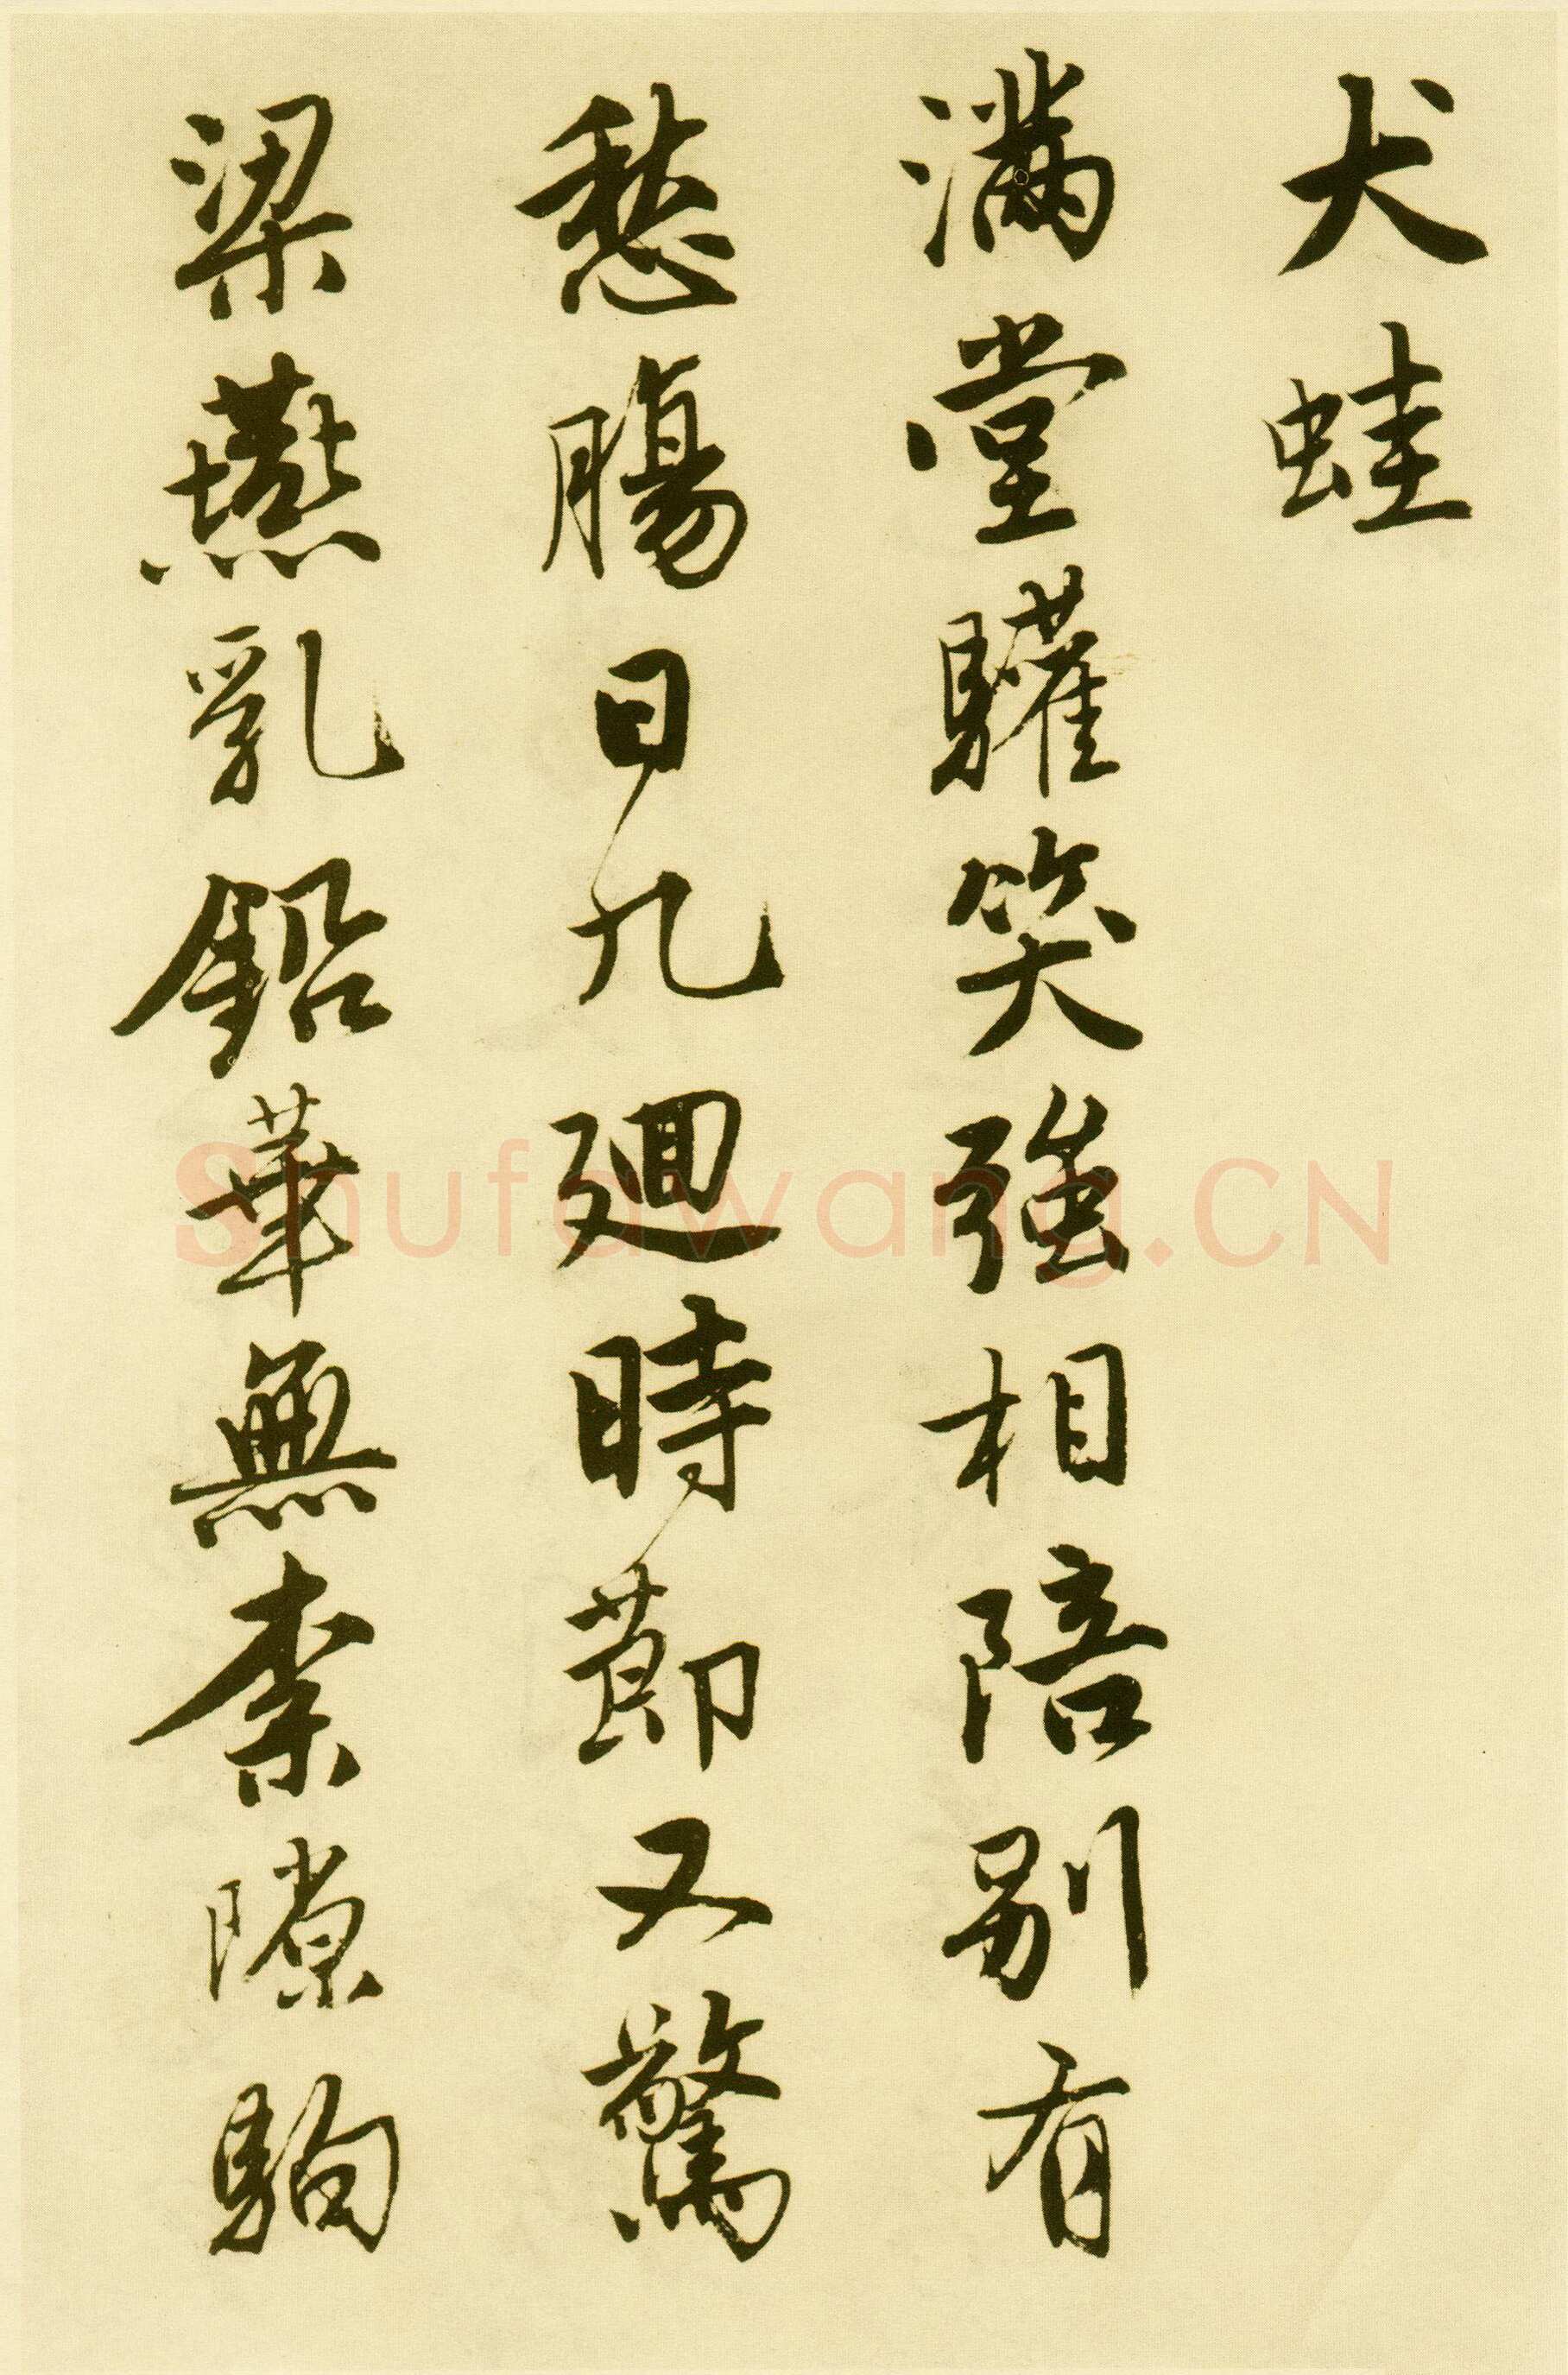 犬蛙
滿堂驩笑強相陪別有
愁腸日九廻時節又驚
梁燕乳鉛華無柰隙駒
Shufawang.CN